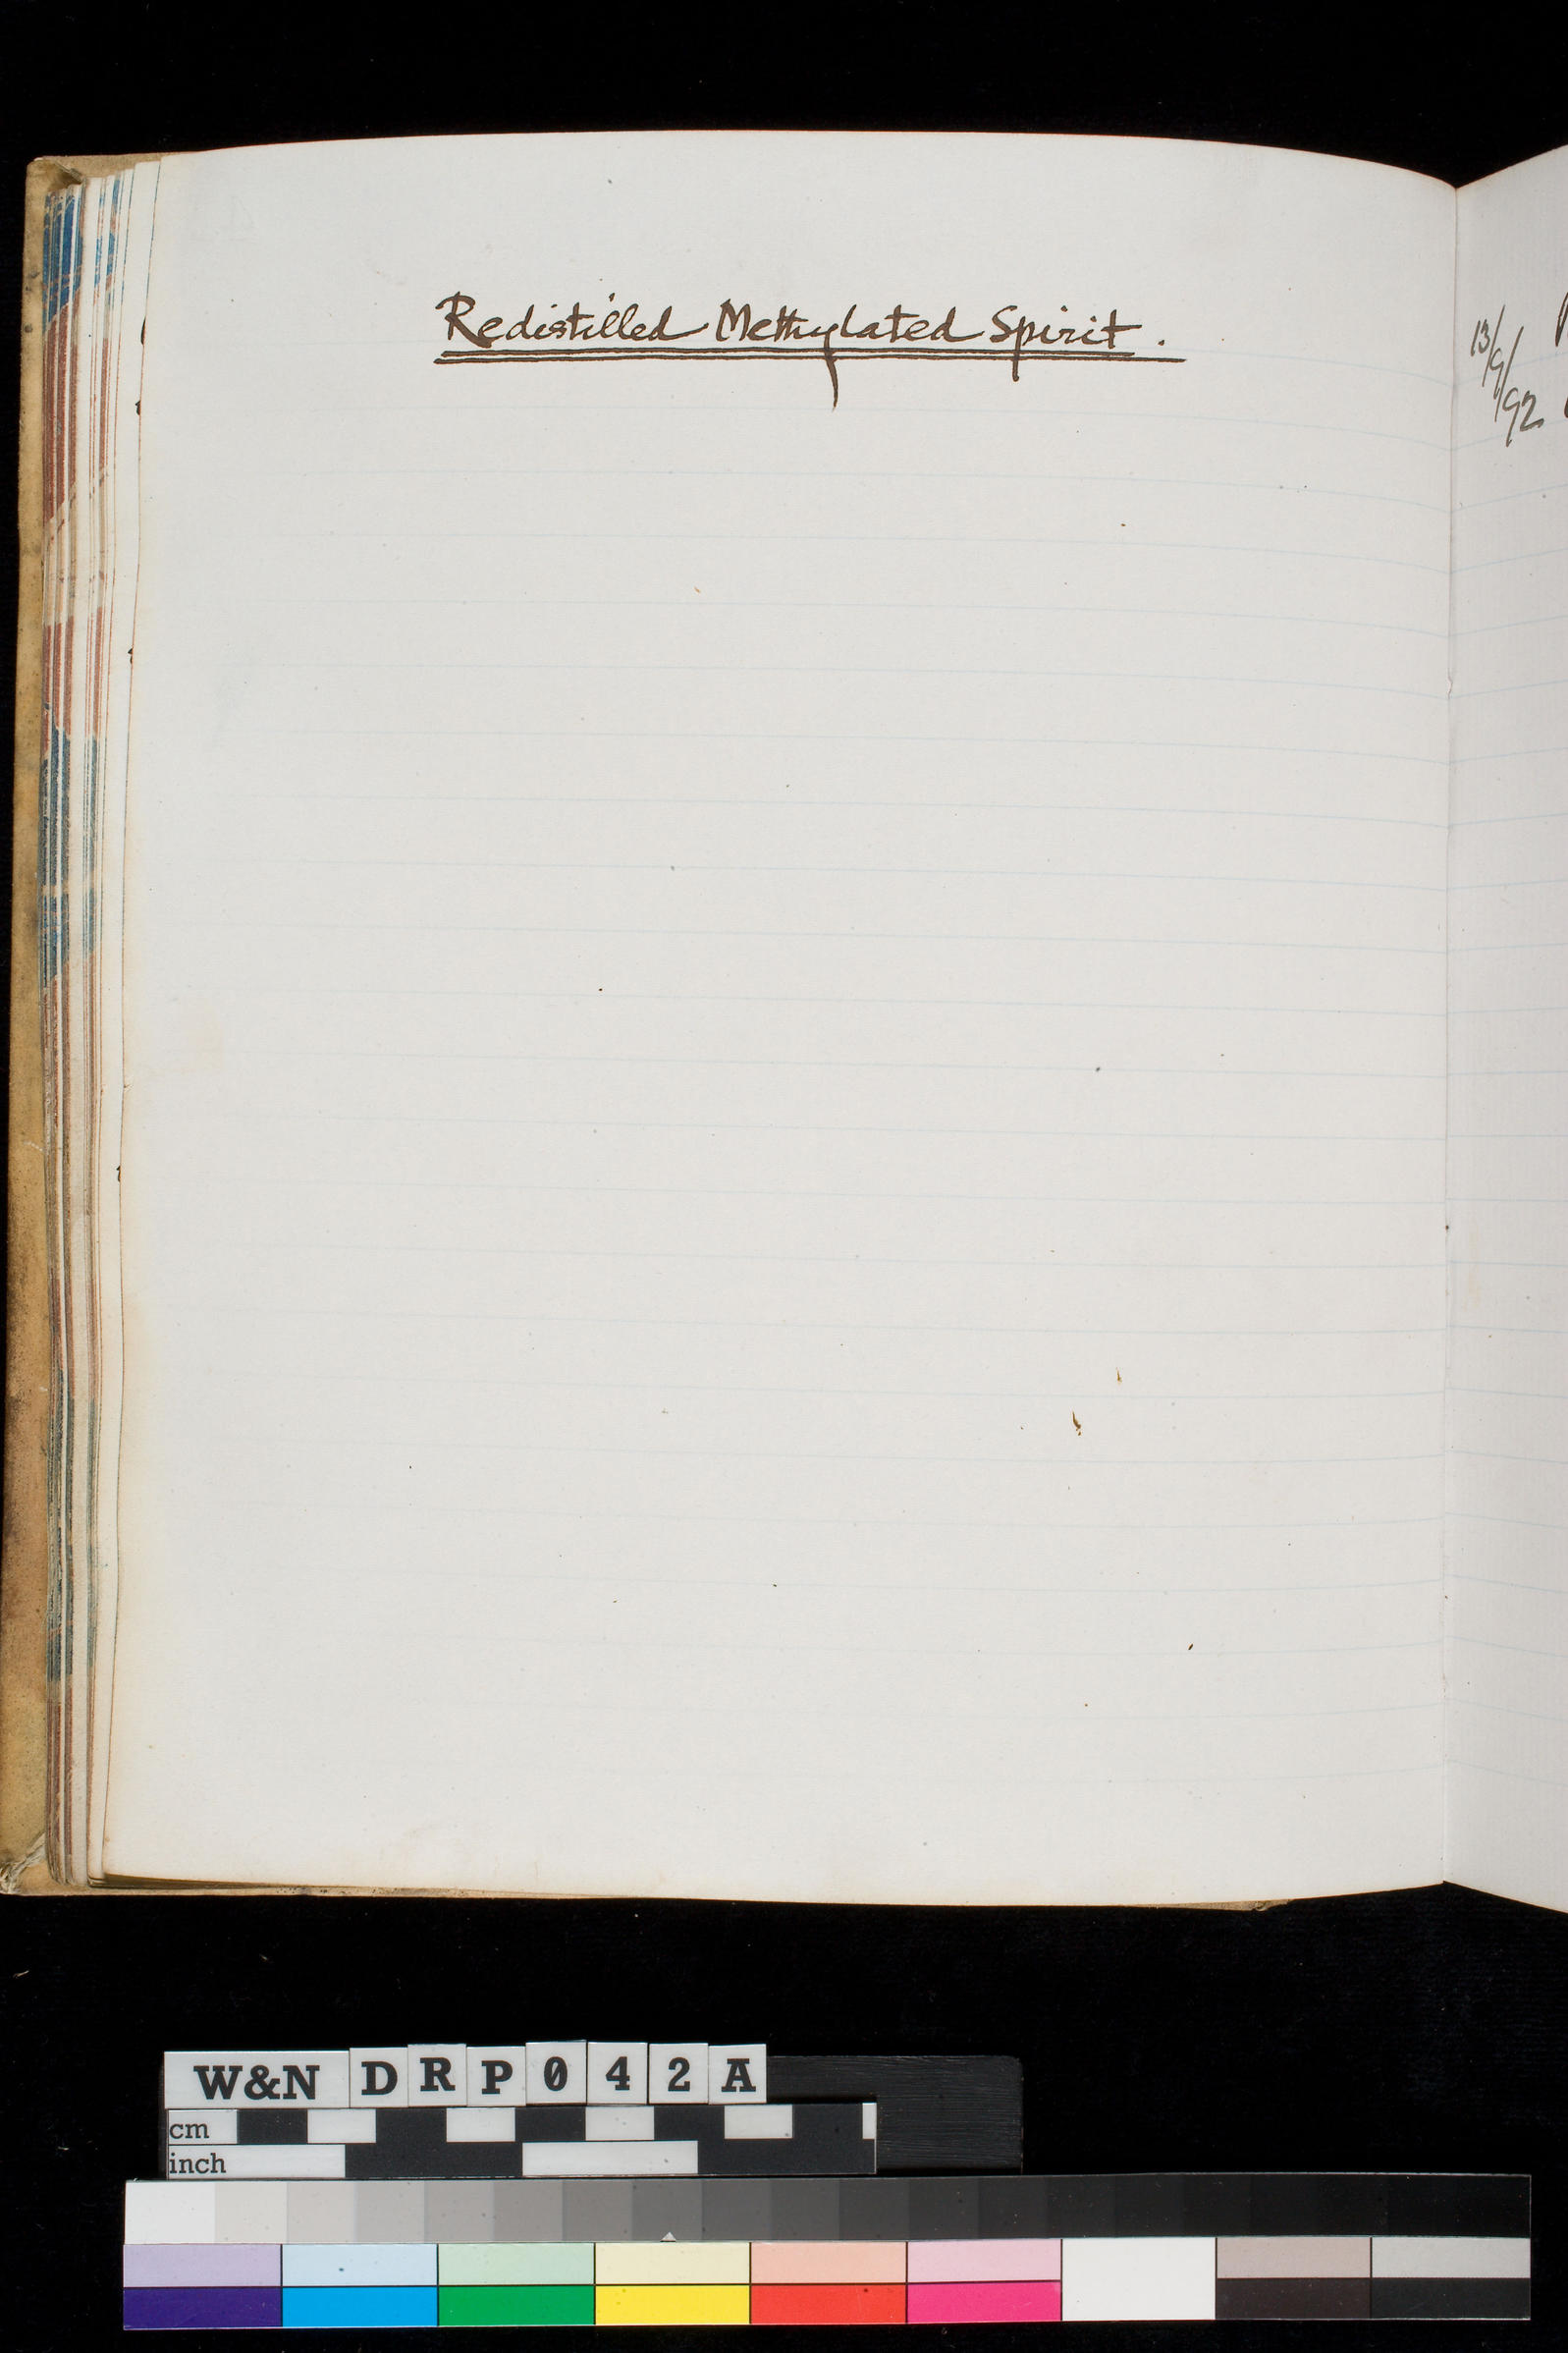 Redistilled Methylated Spirit.
13/9/92
W&N DRP042A
cm
inch